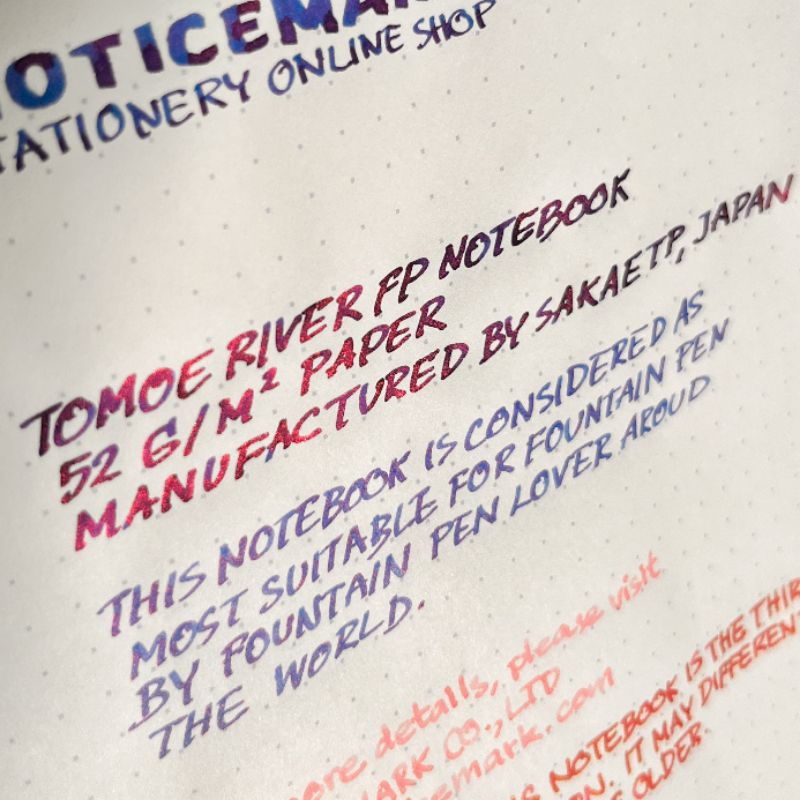 OTICEMA
TATIONERY ONLINE SHOP
TOMOE RIVER FP NOTEBOOK
52 G/M² PAPER
MANUFACTURED BY SAKAE TP, JAPAN
THIS NOTEBOOK IS CONSIDERED AS
MOST SUITABLE FOR FOUNTAIN PEN
BY FOUNTAIN PEN LOVER AROUD
THE WORLD.
ore details, please visit
ARK CO., LTD
emark.com
S NOTEBOOK IS THE THIR
ON. IT MAY DIFFEREN
OLDER.